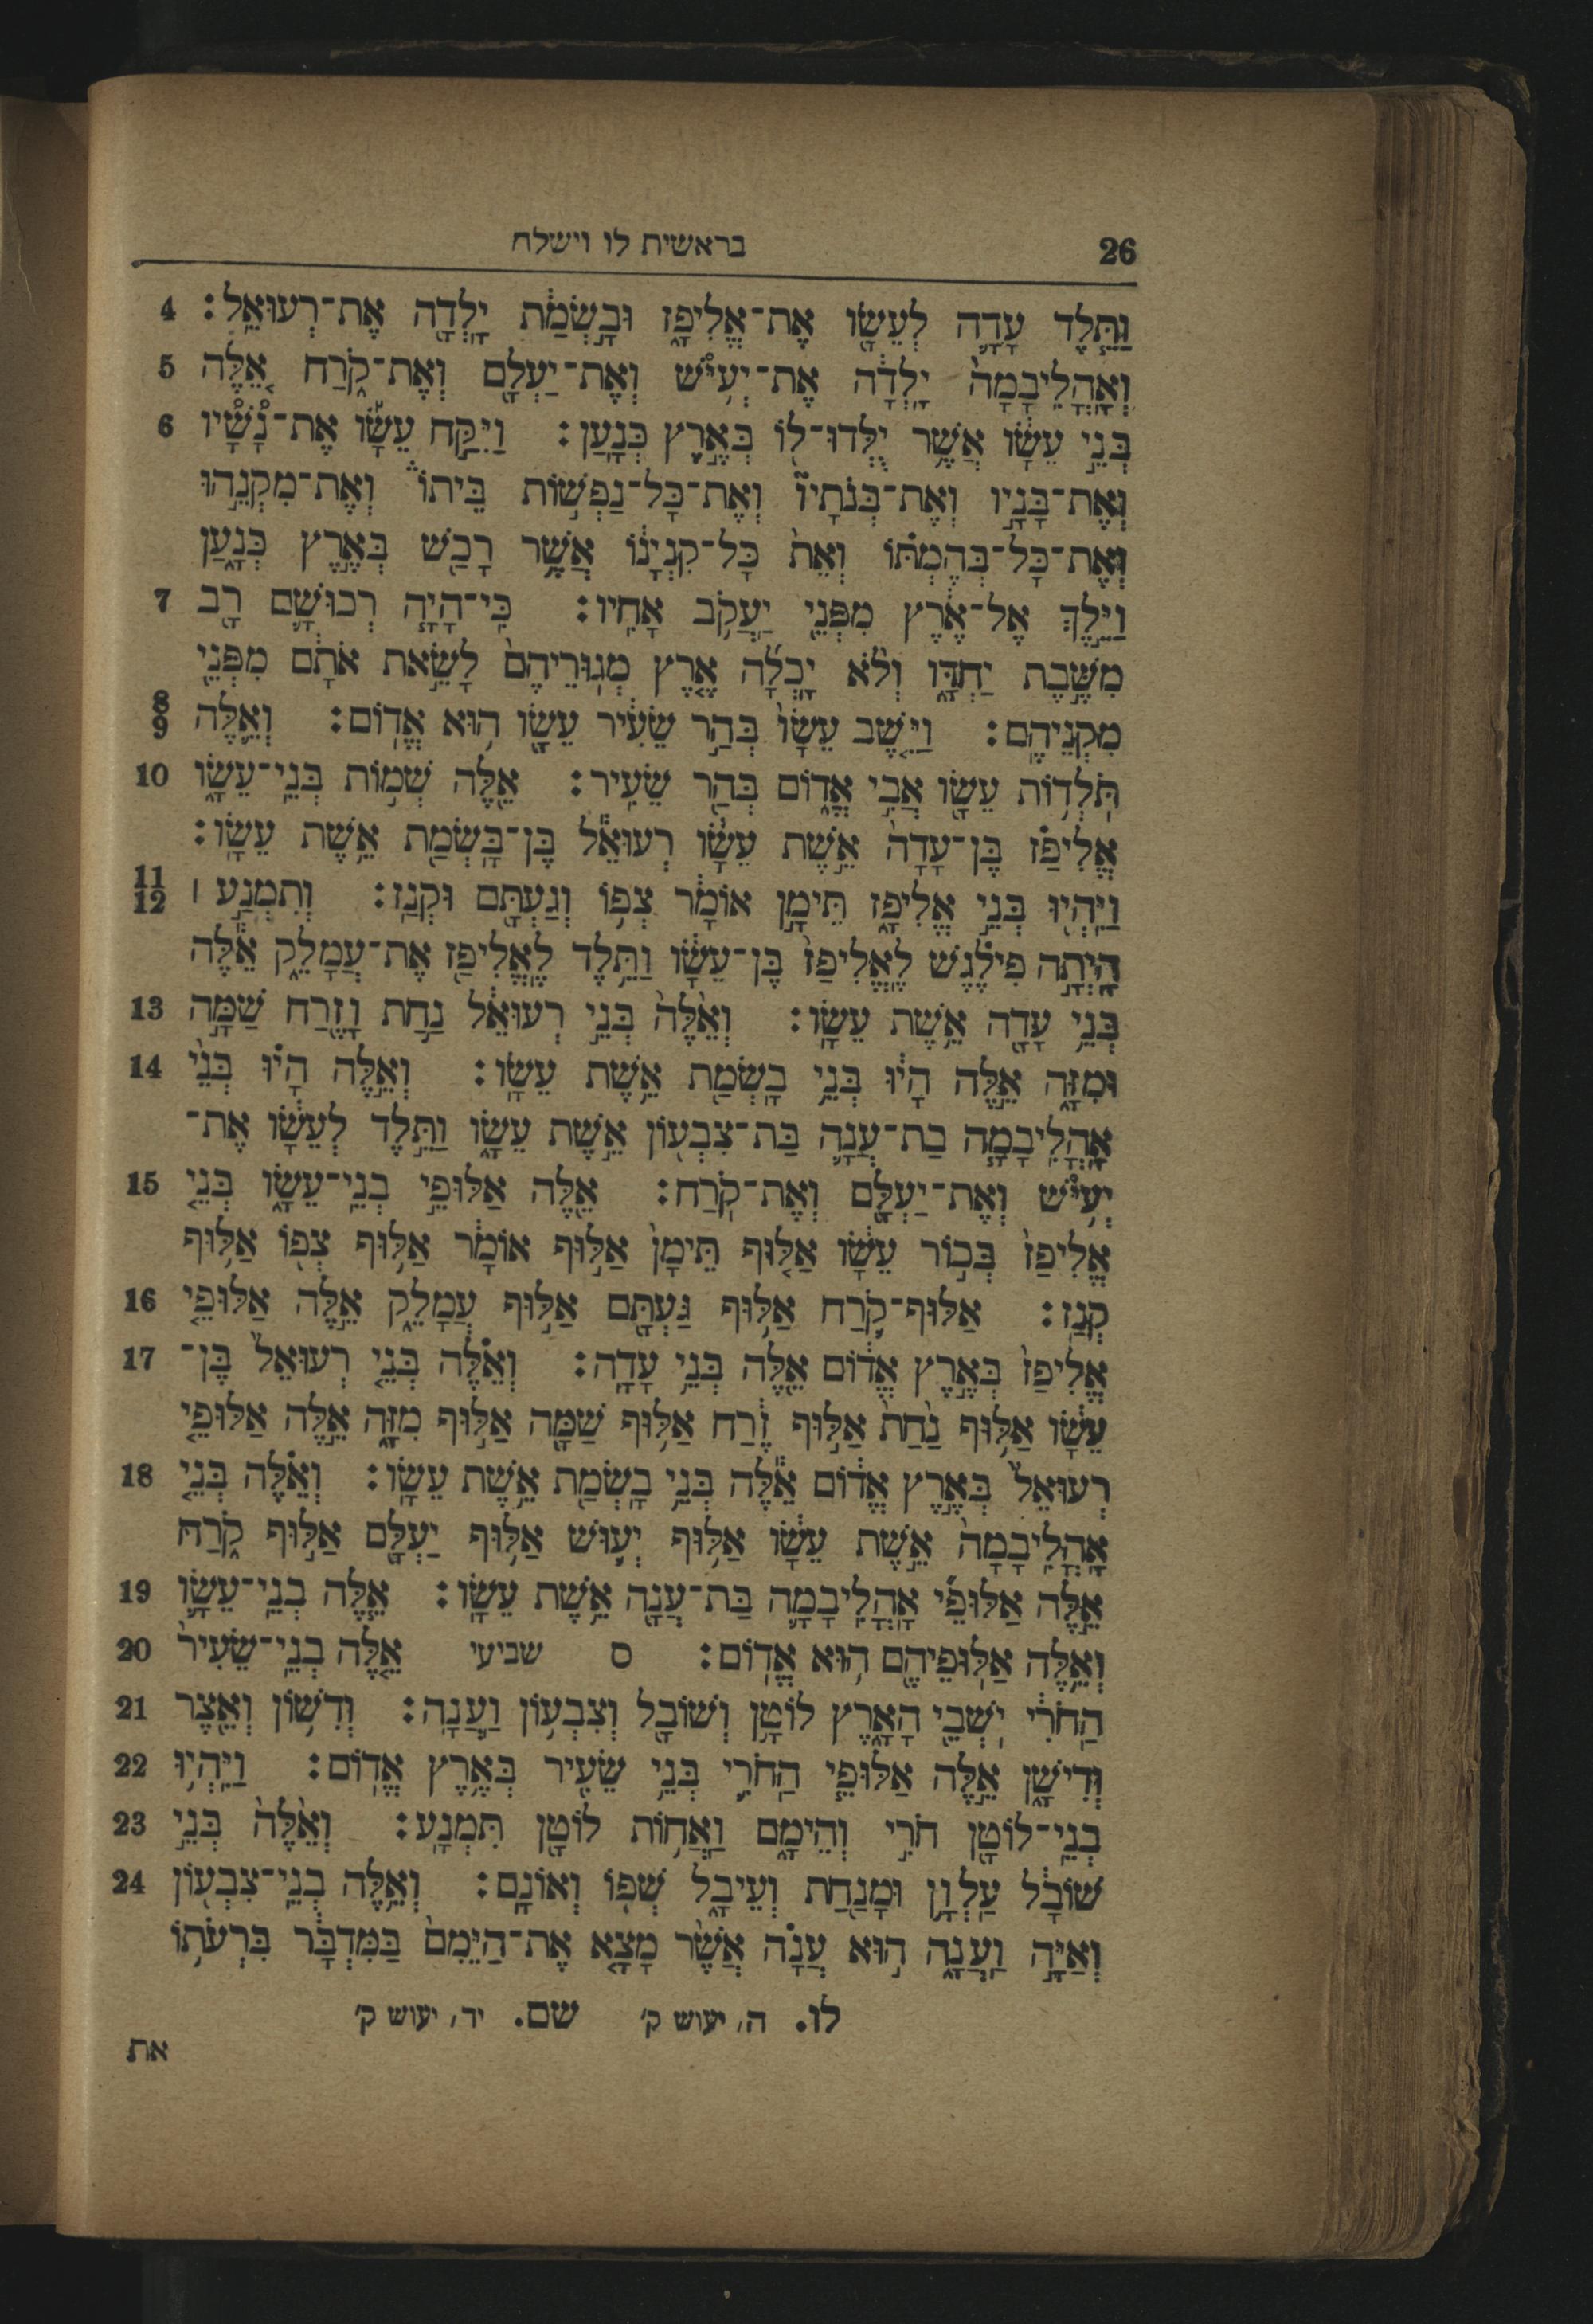 26 בראשית לו וישלח
וַתֵּ֧לֶד עָדָ֛ה לְעֵשָׂ֖ו אֶת־אֱלִיפָ֑ז וּבָ֣שְׂמַ֔ת יָלְדָ֖ה אֶת־רְעוּאֵֽל׃ 4
וְאָהֳלִֽיבָמָה֙ יָֽלְדָ֔ה אֶת־יְעִ֥ישׁ וְאֶת־יַעְלָ֖ם וְאֶת־קֹ֑רַח אֵ֚לֶּה 5
בְּנֵ֣י עֵשָׂ֔ו אֲשֶׁ֥ר יֻלְּדוּ־ל֖וֹ בְּאֶ֥רֶץ כְּנָֽעַן׃ וַיִּקַּ֣ח עֵשָׂ֡ו אֶת־נָ֠שָׁיו 6
וְאֶת־בָּנָ֣יו וְאֶת־בְּנֹתָיו֮ וְאֶת־כָּל־נַפְשׁ֣וֹת בֵּיתוֹ֒ וְאֶת־מִקְנֵ֣הוּ
וְאֶת־כָּל־בְּהֶמְתּ֗וֹ וְאֵת֙ כָּל־קִנְיָנ֔וֹ אֲשֶׁ֥ר רָכַ֖שׁ בְּאֶ֣רֶץ כְּנָ֑עַן
וַיֵּ֣לֶךְ אֶל־אֶ֔רֶץ מִפְּנֵ֖י יַעֲקֹ֥ב אָחִֽיו׃ כִּֽי־הָיָ֧ה רְכוּשָׁ֛ם רָ֖ב 7
מִשֶּׁ֣בֶת יַחְדָּ֑ו וְלֹ֨א יָֽכְלָ֜ה אֶ֤רֶץ מְגֽוּרֵיהֶם֙ לָשֵׂ֣את אֹתָ֔ם מִפְּנֵ֖י
מִקְנֵיהֶֽם׃ וַיֵּ֤שֶׁב עֵשָׂו֙ בְּהַ֣ר שֵׂעִ֔יר עֵשָׂ֖ו ה֥וּא אֱדֽוֹם׃ וְאֵ֛לֶּה 8 9
תֹּלְד֥וֹת עֵשָׂ֖ו אֲבִ֣י אֱד֑וֹם בְּהַ֖ר שֵׂעִֽיר׃ אֵ֖לֶּה שְׁמ֣וֹת בְּנֵֽי־עֵשָׂ֑ו 10
אֱלִיפַ֗ז בֶּן־עָדָה֙ אֵ֣שֶׁת עֵשָׂ֔ו רְעוּאֵ֕ל בֶּן־בָּשְׂמַ֖ת אֵ֥שֶׁת עֵשָֽׂו׃
וַיִּהְי֖וּ בְּנֵ֣י אֱלִיפָ֑ז תֵּימָ֣ן אוֹמָ֔ר צְפ֥וֹ וְגַעְתָּ֖ם וּקְנַֽז׃ וְתִמְנַ֣ע ׀ 11 12
הָיְתָ֣ה פִילֶ֗גֶשׁ לֶֽאֱלִיפַז֙ בֶּן־עֵשָׂ֔ו וַתֵּ֥לֶד לֶאֱלִיפַ֖ז אֶת־עֲמָלֵ֑ק אֵ֕לֶּה
בְּנֵ֥י עָדָ֖ה אֵ֥שֶׁת עֵשָֽׂו׃ וְאֵ֙לֶּה֙ בְּנֵ֣י רְעוּאֵ֔ל נַ֥חַת וָזֶ֖רַח שַׁמָּ֣ה 13
וּמִזָּ֑ה אֵ֣לֶּה הָי֔וּ בְּנֵ֥י בָשְׂמַ֖ת אֵ֥שֶׁת עֵשָֽׂו׃ וְאֵ֣לֶּה הָי֗וּ בְּנֵ֨י 14
אָהֳלִיבָמָ֧ה בַת־עֲנָ֛ה בַּת־צִבְע֖וֹן אֵ֣שֶׁת עֵשָׂ֑ו וַתֵּ֣לֶד לְעֵשָׂ֔ו אֶת־
יְעִ֥ישׁ וְאֶת־יַעְלָ֖ם וְאֶת־קֹֽרַח׃ אֵ֖לֶּה אַלּוּפֵ֣י בְנֵֽי־עֵשָׂ֑ו בְּנֵ֤י 15
אֱלִיפַז֙ בְּכ֣וֹר עֵשָׂ֔ו אַלּ֤וּף תֵּימָן֙ אַלּ֣וּף אוֹמָ֔ר אַלּ֥וּף צְפ֖וֹ אַלּ֥וּף
קְנַֽז׃ אַלּֽוּף־קֹ֛רַח אַלּ֥וּף גַּעְתָּ֖ם אַלּ֣וּף עֲמָלֵ֑ק אֵ֣לֶּה אַלּוּפֵ֤י 16
אֱלִיפַז֙ בְּאֶ֣רֶץ אֱד֔וֹם אֵ֖לֶּה בְּנֵ֥י עָדָֽה׃ וְאֵ֗לֶּה בְּנֵ֤י רְעוּאֵל֙ בֶּן־ 17
עֵשָׂ֔ו אַלּ֥וּף נַ֙חַת֙ אַלּ֣וּף זֶ֔רַח אַלּ֥וּף שַׁמָּ֖ה אַלּ֣וּף מִזָּ֑ה אֵ֣לֶּה אַלּוּפֵ֤י
רְעוּאֵל֙ בְּאֶ֣רֶץ אֱד֔וֹם אֵ֕לֶּה בְּנֵ֥י בָשְׂמַ֖ת אֵ֥שֶׁת עֵשָֽׂו׃ וְאֵ֗לֶּה בְּנֵ֤י 18
אָהֳלִֽיבָמָה֙ אֵ֣שֶׁת עֵשָׂ֔ו אַלּ֥וּף יְע֛וּשׁ אַלּ֥וּף יַעְלָ֖ם אַלּ֣וּף קֹ֑רַח
אֵ֣לֶּה אַלּוּפֵ֞י אָֽהֳלִיבָמָ֛ה בַּת־עֲנָ֖ה אֵ֥שֶׁת עֵשָֽׂו׃ אֵ֧לֶּה בְנֵי־עֵשָׂ֛ו 19
וְאֵ֥לֶּה אַלּֽוּפֵיהֶ֖ם ה֥וּא אֱדֽוֹם׃ ס שביעי אֵ֤לֶּה בְנֵֽי־שֵׂעִיר֙ 20
הַחֹרִ֔י יֹשְׁבֵ֖י הָאָ֑רֶץ לוֹטָ֥ן וְשׁוֹבָ֖ל וְצִבְע֥וֹן וַעֲנָֽה׃ וְדִשׁ֥וֹן וְאֵ֖צֶר 21
וְדִישָׁ֑ן אֵ֣לֶּה אַלּוּפֵ֧י הַחֹרִ֛י בְּנֵ֥י שֵׂעִ֖יר בְּאֶ֥רֶץ אֱדֽוֹם׃ וַיִּהְי֥וּ 22
בְנֵי־לוֹטָ֖ן חֹרִ֣י וְהֵימָ֑ם וַאֲח֥וֹת לוֹטָ֖ן תִּמְנָֽע׃ וְאֵ֙לֶּה֙ בְּנֵ֣י 23
שׁוֹבָ֔ל עַלְוָ֥ן וּמָנַ֖חַת וְעֵיבָ֑ל שְׁפ֖וֹ וְאוֹנָֽם׃ וְאֵ֥לֶּה בְנֵֽי־צִבְע֖וֹן 24
וְאַיָּ֣ה וַעֲנָ֑ה ה֣וּא עֲנָ֗ה אֲשֶׁ֨ר מָצָ֤א אֶת־הַיֵּמִם֙ בַּמִּדְבָּ֔ר בִּרְעֹת֥וֹ
לו. ה׳ יעוש ק׳ שם. יד׳ יעוש ק׳
את